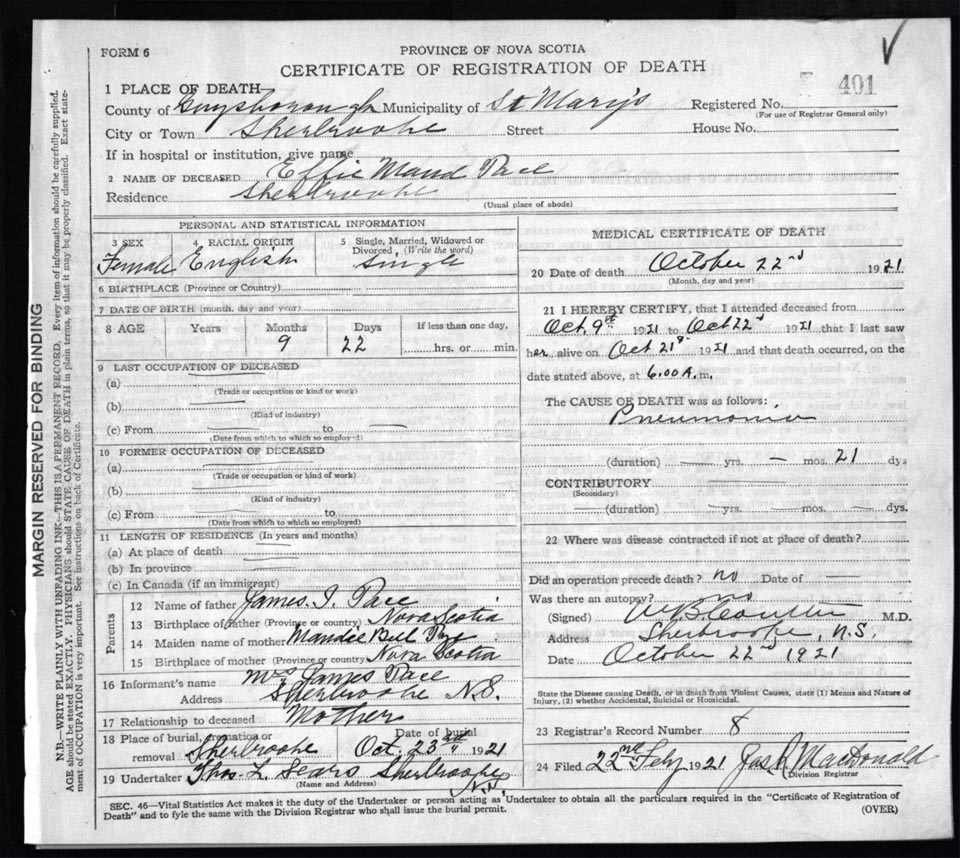 FORM 6
PROVINCE OF NOVA SCOTIA
CERTIFICATE OF REGISTRATION OF DEATH
401
1 PLACE OF DEATH
County of Guysborough Municipality of St Mary's Registered No.
(For use of Registrar General only)
City or Town Sherbrooke Street House No.
If in hospital or institution, give name
2 NAME OF DECEASED Effie Maud Pace
Residence Sherbrooke
(Usual place of abode)
PERSONAL AND STATISTICAL INFORMATION
3 SEX Female
4 RACIAL ORIGIN English
5 Single, Married, Widowed or Divorced, (Write the word) Single
6 BIRTHPLACE (Province or Country)
7 DATE OF BIRTH (month, day and year)
8 AGE Years Months 9 Days 22 If less than one day, hrs. or min.
9 LAST OCCUPATION OF DECEASED
(a)
(Trade or occupation or kind or work)
(b)
(Kind of industry)
(c) From to
(Date from which to which so employed)
10 FORMER OCCUPATION OF DECEASED
(a)
(Trade or occupation or kind of work)
(b)
(Kind of industry)
(c) From to
(Date from which to which so employed)
11 LENGTH OF RESIDENCE (In years and months)
(a) At place of death
(b) In province
(c) In Canada (if an immigrant)
Parents
12 Name of father James I. Pace
13 Birthplace of father (Province or country) Nova Scotia
14 Maiden name of mother Maudie Bell
15 Birthplace of mother (Province or country) Nova Scotia
16 Informant's name Mrs James Pace
Address Sherbrooke N.S.
17 Relationship to deceased Mother
18 Place of burial, cremation or removal Sherbrooke Date of burial Oct. 23rd 1921
19 Undertaker Thos. L. Sears Sherbrooke N.S.
(Name and Address)
MEDICAL CERTIFICATE OF DEATH
20 Date of death October 22nd 1921
(Month, day and year)
21 I HEREBY CERTIFY, that I attended deceased from
Oct. 9th 1921 to Oct 22d 1921 that I last saw
her alive on Oct 21st 1921 and that death occurred, on the
date stated above, at 6.00 A.m.
The CAUSE OF DEATH was as follows:
Pneumonia
(duration) yrs. mos. 21 dys
CONTRIBUTORY
(Secondary)
(duration) yrs. mos. dys.
22 Where was disease contracted if not at place of death?
Did an operation precede death? no Date of
Was there an autopsy? no
(Signed) M.D.
Address Sherbrooke, N.S.
Date October 22nd 1921
State the Disease causing Death, or in death from Violent Causes, state (1) Means and Nature of
Injury, (2) whether Accidental, Suicidal or Homicidal.
23 Registrar's Record Number 8
24 Filed 22nd Feby 1921 Jas. A MacDonald
Division Registrar
SEC. 46—Vital Statistics Act makes it the duty of the Undertaker or person acting as Undertaker to obtain all the particulars required in the "Certificate of Registration of
Death" and to fyle the same with the Division Registrar who shall issue the burial permit.
(OVER)
MARGIN RESERVED FOR BINDING
N.B.—WRITE PLAINLY WITH UNFADING INK—THIS IS A PERMANENT RECORD. Every item of information should be carefully supplied.
AGE should be stated EXACTLY. PHYSICIANS should STATE CAUSE OF DEATH in plain terms, so that it may be properly classified. Exact state-
ment of OCCUPATION is very important. See instructions on back of Certificate.